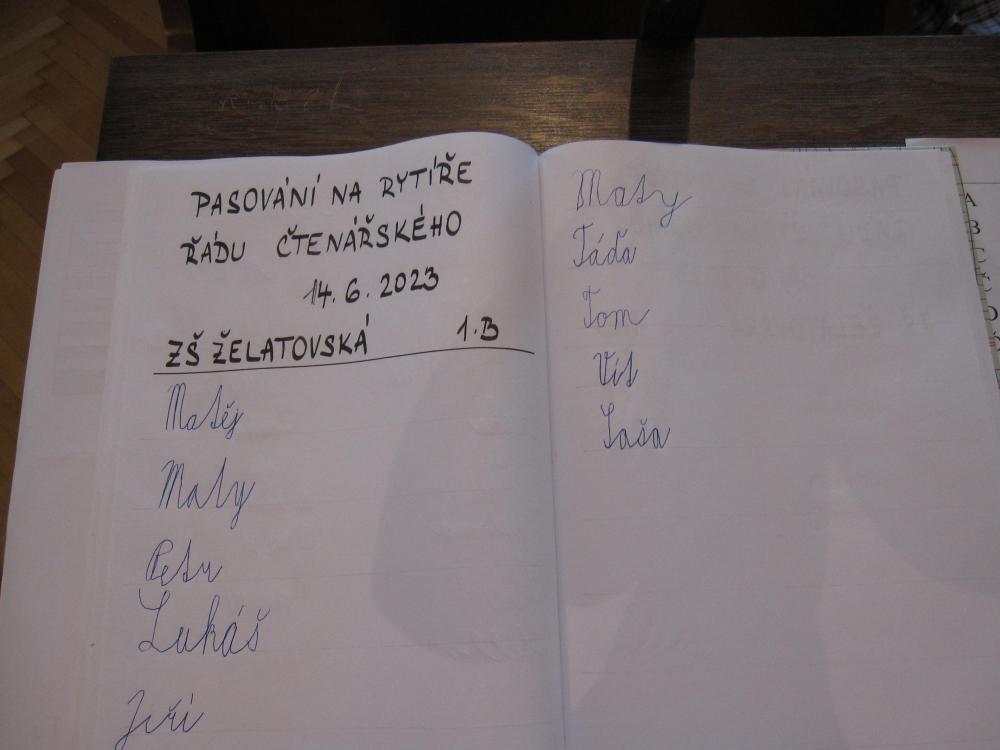 PASOVÁNÍ NA RYTÍŘE
ŘÁDU ČTENÁŘSKÉHO
14.6.2023
ZŠ ŽELATOVSKÁ 1.B
Matěj
Maty
Petr
Lukáš
Jiří
Maty
Táďa
Tom
Vít
Saša
A
B